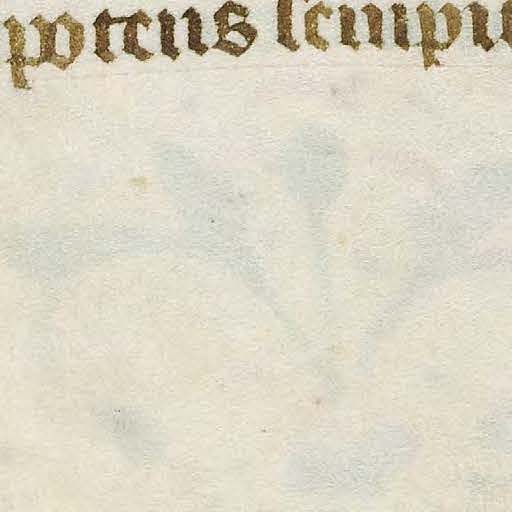 potens sempi